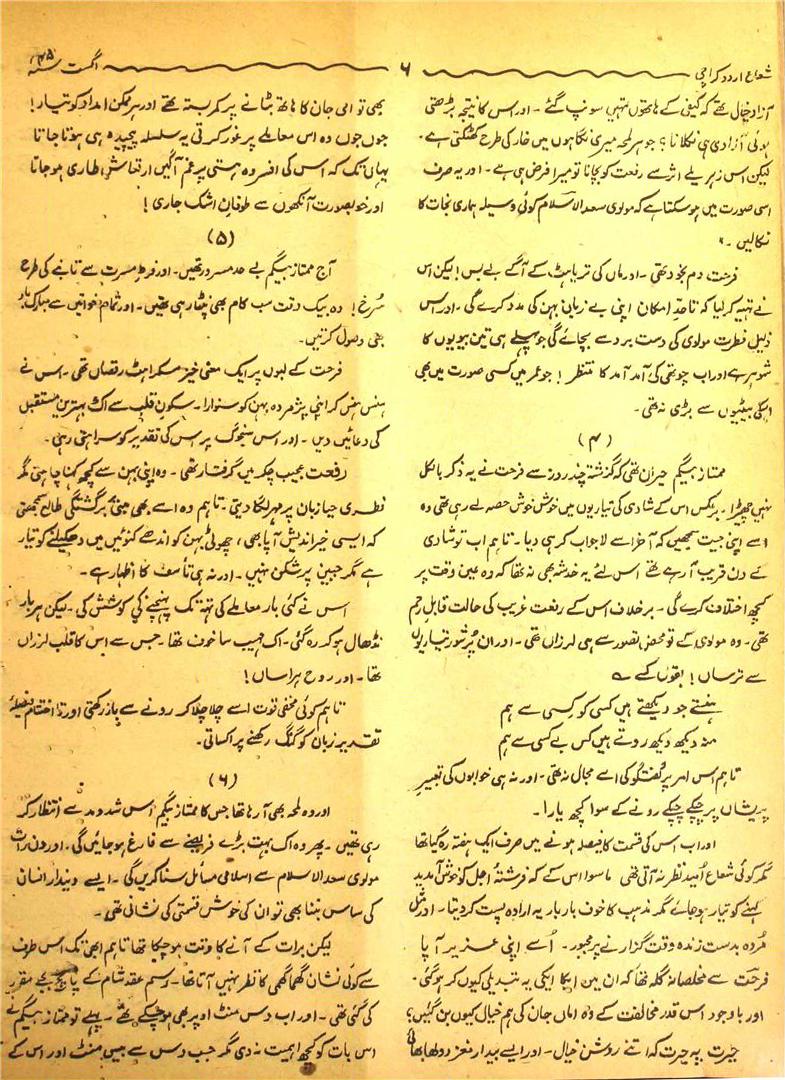 شعاع اردو کراچی
۶
اگست سنہ ۴۵ء
آزاد خیال تھے کہ کیفی کے ہاتھوں تمہیں سونپ گئے ۔ اور اس کا نتیجہ بڑھتی
ہوئی آزادی ہی نکلا نا؟ جو ہر لمحہ میری نگاہوں میں خار کی طرح کھٹکتی ہے ۔
لیکن اس زہریلے اثر سے رفعت کو بچانا تو میرا فرض ہی ہے ۔ اور یہ صرف
اسی صورت میں ہو سکتا ہے کہ مولوی سعد الاسلام کوئی وسیلہ ہماری نجات کا
نکالیں ۔"
فرحت دم بخود تھی ۔ اور ماں کی تریا ہٹ کے آگے بے بس! لیکن اس
نے تہیہ کر لیا کہ تا حدِ امکان اپنی بے زبان بہن کی مدد کرے گی ۔ اور اس
ذلیل فطرت مولوی کی دست برد سے بچائے گی جو پہلے ہی تین بیویوں کا
شوہر ہے اور اب چوتھی کی آمد آمد کا منتظر! جو عمر میں کسی صورت میں بھی
اسکی بیٹیوں سے بڑی نہ تھی ۔
(۴)
ممتاز بیگم حیران تھی کہ گزشتہ چند روز سے فرحت نے یہ ذکر بالکل
نہیں چھیڑا ۔ برعکس اس کے شادی کی تیاریوں میں خوش خوش حصہ لے رہی تھی وہ
اسے اپنی جیت سمجھیں کہ آخر اسے لاجواب کر ہی دیا ۔ تاہم اب تو شادی
کے دن قریب آ رہے تھے اس لئے یہ خدشہ بھی نہ تھا کہ وہ عین وقت پر
کچھ اختلاف کرے گی ۔ برخلاف اس کے رفعت غریب کی حالت قابلِ رحم
تھی ۔ وہ مولوی کے تو محض تصور سے ہی لرزاں تھی ۔ اور ان پُر شور تیاریوں
سے ترساں! بقول کسے ؎
ہنستے جو دیکھتے ہیں کسی کو کسی سے ہم
منہ دیکھ دیکھ روتے ہیں کس بے کسی سے ہم
تاہم اس امر پر گفتگو کی اسے مجال نہ تھی ۔ اور نہ ہی خوابوں کی تعبیرِ
پریشاں پر چپکے چپکے رونے کے سوا کچھ یارا ۔
اور اب اس کی قسمت کا فیصلہ ہونے میں صرف ایک ہفتہ رہ گیا تھا
مگر کوئی شعاعِ اُمید نظر نہ آتی تھی ماسوا اس کے کہ فرشتۂ اجل کو خوش آمدید
کہنے کو تیار ہو جائے مگر مذہب کا خوف بار بار یہ ارادہ پست کر دیتا ۔ اور مثل
مُردہ بدست زندہ وقت گزارنے پر مجبور ۔ اُسے اپنی عزیز آپا
فرحت سے مخلصانہ گلہ تھا کہ ان میں ایکا ایکی یہ تبدیلی کیوں کر ہو گئی ۔
اور باوجود اس قدر مخالفت کے وہ اماں جان کی ہم خیال کیوں بن گئیں؟
حیرت پہ حیرت کہ اتنے روشن خیال ۔ اور ایسے بیدار مغز دولھا بھائی
بھی تو امی جان کا ہاتھ بٹانے پر کمر بستہ تھے اور ہر ممکن امداد کو تیار!
جوں جوں وہ اس معاملے پر غور کرتی یہ سلسلہ پیچیدہ ہی ہوتا جاتا
یہاں تک کہ اس کی افسردہ ہستی پر غم آگیں ارتعاش طاری ہو جاتا
اور خوبصورت آنکھوں سے طوفانِ اشک جاری!
(۵)
آج ممتاز بیگم بے حد مسرور تھیں ۔ اور فرطِ مسرت سے تانبے کی طرح
سُرخ! وہ بیک وقت سب کام بھی نپٹا رہی تھیں ۔ اور تمام خواتین سے مبارکباد
بھی وصول کرتیں ۔
فرحت کے لبوں پر ایک معنی خیز مسکراہٹ رقصاں تھی ۔ اس نے
ہنس ہنس کر اپنی پژمردہ بہن کو سنوارا ۔ سکونِ قلب سے اک بہترین مستقبل
کی دعائیں دیں ۔ اور اس سنجوگ پر اس کی تقدیر کو سراہتی رہی ۔
رفعت عجیب چکر میں گرفتار تھی ۔ وہ اپنی بہن سے کچھ کہنا چاہتی مگر
فطری حیا زبان پر مہر لگا دیتی ۔ تاہم وہ اسے بھی اپنی برگشتگی طالع سمجھتی
کہ ایسی خیر اندیش آپا بھی ، چھوٹی بہن کو اندھے کنوئیں میں دھکیلنے کو تیار
ہے مگر جبین پر شکن نہیں ۔ اور نہ ہی تاسف کا اظہار ہے ۔
اس نے کئی بار معاملے کی تہہ تک پہنچنے کی کوشش کی ۔ لیکن ہر بار
نڈھال ہو کر رہ گئی ۔ اک مہیب سا خوف تھا ۔ جس سے اس کا قلب لرزاں
تھا ۔ اور روح ہراساں!
تاہم کوئی مخفی قوت اسے چلا چلا کر رونے سے باز رکھتی اور تا اختتام فیصلۂ
تقدیر زبان کو گنگ رکھنے پر اکساتی ۔
(۶)
اور وہ لمحہ بھی آ رہا تھا جس کا ممتاز بیگم اس شد و مد سے انتظار کر
رہی تھیں ۔ پھر وہ اک بہت بڑے فریضے سے فارغ ہو جائیں گی ۔ اور دن رات
مولوی سعد الاسلام سے اسلامی مسائل سنا کریں گی ۔ ایسے دیندار انسان
کی ساس بننا بھی تو ان کی خوش قسمتی کی نشانی تھی ۔
لیکن برات کے آنے کا وقت ہو چکا تھا تاہم ابھی تک اس طرف
سے کوئی نشان گہما گہمی کا نظر نہیں آتا تھا ۔ رسم عقد شام کے پانچ بجے مقرر
کی گئی تھی ۔ اور اب دس منٹ اوپر بھی ہو چکے تھے ۔ پہلے تو ممتاز بیگم نے
اس بات کو کچھ اہمیت نہ دی مگر جب دس سے بیس منٹ اور اس کے